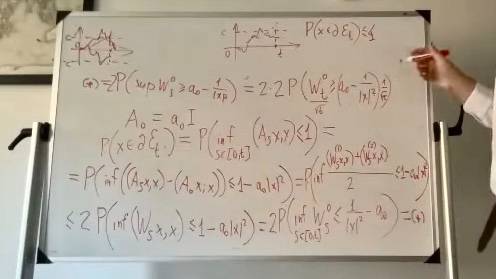 P(x∈∂Ɛ_t)≤1
(*)=2P(sup W_s^0 ≥ a_0 - 1/|x|²) = 2·2P(W_t^0/√t ≥ (a_0 - 1/|x|²) 1/√t)
A_0 = a_0 I
P(x∈∂Ɛ_t) = P(inf_{s∈[0,t]} (A_s x,x) ≤ 1) =
= P(inf((A_s x,x) - (A_0 x,x)) ≤ 1 - a_0|x|²) = P(inf ((W_s^{(1)} x,x) + (W_s^{(2)} x,x))/2 ≤ 1 - a_0|x|²)
≤ 2P(inf(W_s x,x) ≤ 1 - a_0|x|²) = 2P(inf_{s∈[0,t]} W_s^0 ≤ 1/|x|² - a_0) = (*)